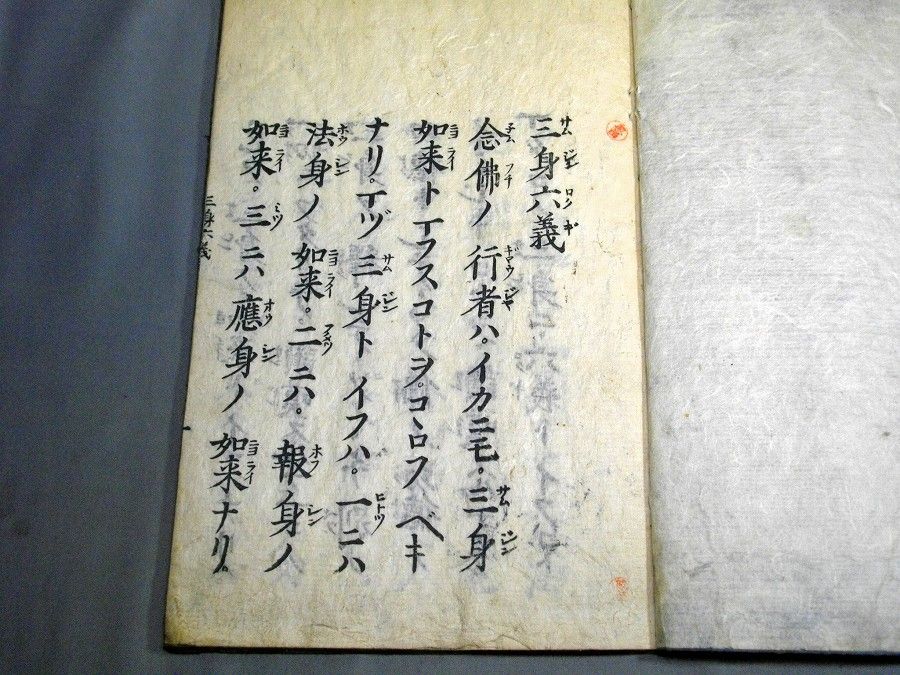 三身六義
念佛ノ行者ハ。イカニモ。三身
如来トイフスコトヲ。コヽロフベキ
ナリ。イヅ三身トイフハ。一ニハ
法身ノ如来。二ニハ。報身ノ
如来。三ニハ應身ノ如来ナリ。
三身六義